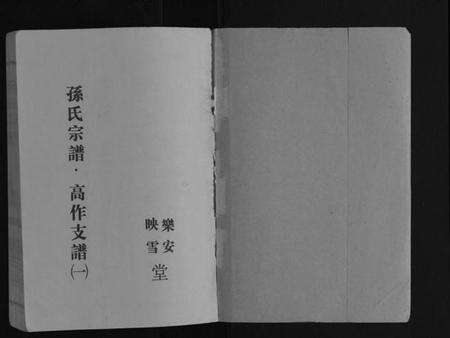 孫氏宗譜·高作支譜(一)
樂安
映雪
堂